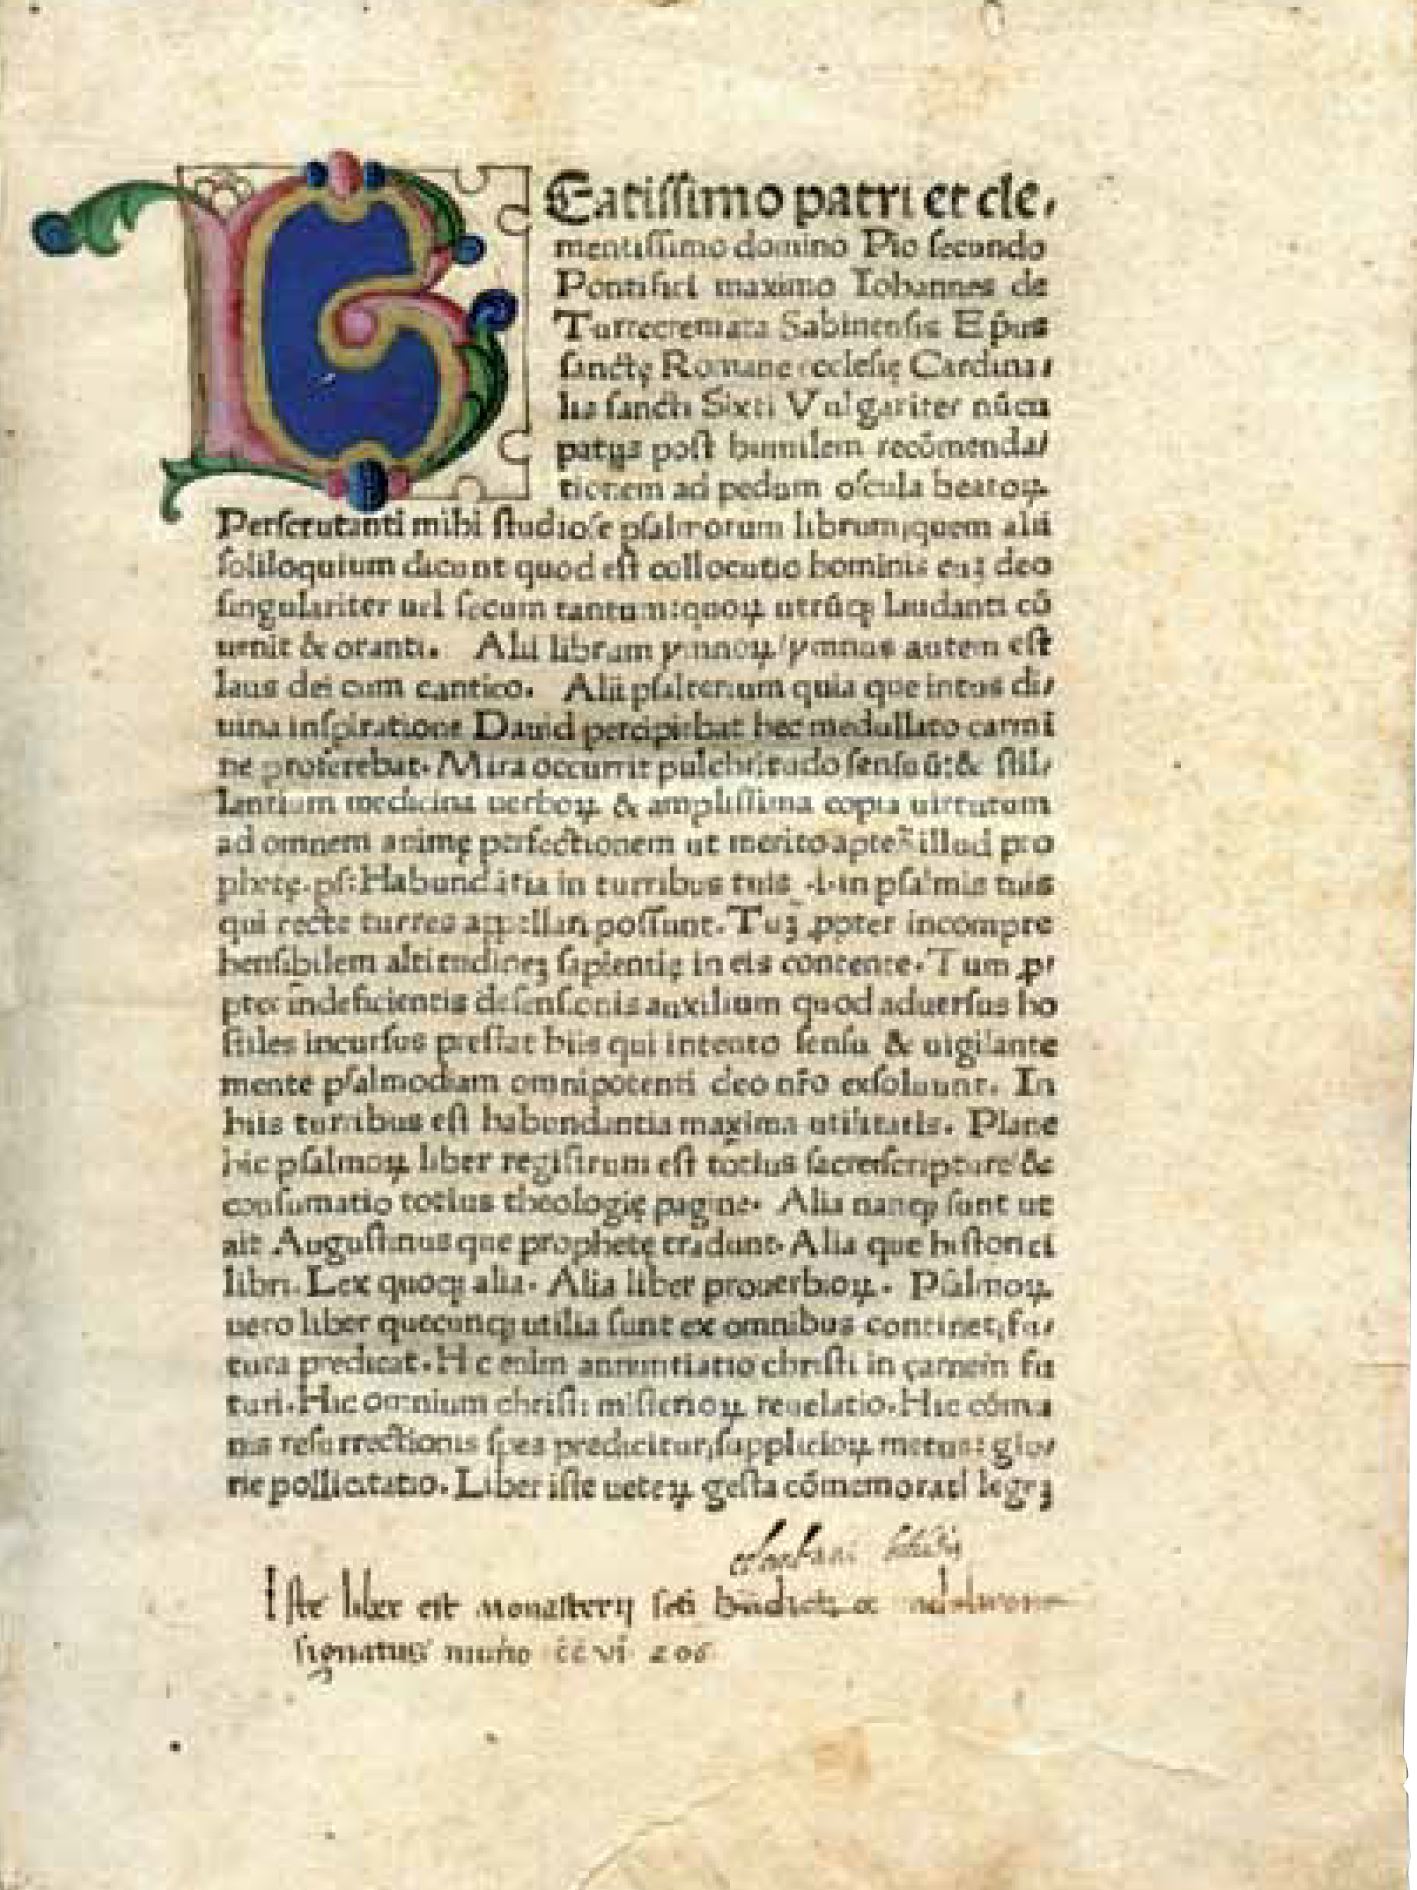 BEatissimo patri et cle,
mentissimo domino Pio secundo
Pontifici maximo Iohannes de
Turrecremata Sabinensis Ep̄us
sanctę Romane ecclesię Cardina/
lis sancti Sixti Vulgariter nūcu
patus post humilem recōmenda/
tionem ad pedum oscula beatoꝝ.
Perscrutanti mihi studiose psalmorum librum;quem alii
soliloquium dicunt quod est collocutio hominis cuꝫ deo
singulariter uel secum tantum:quoꝝ utrūqꝫ laudanti cō
uenit & oranti. Alii librum ymnoꝝ/ymnus autem est
laus dei cum cantico. Alii psalterium quia que intus di/
uina inspiratione Dauid percipiebat hec medullato carmi
ne proferebat. Mira occurrit pulchritudo sensuū:& stil/
lantium medicina uerboꝝ & amplissima copia uirtutum
ad omnem animę perfectionem ut merito illud pro
phetę.ps:Habundātia in turribus tuis .i.in psalmis tuis
qui recte turres appellari possunt. Tuꝫ ꝓpter incompre
hensibilem altitudineꝫ sapientię in eis contente. Tum ꝓ
pter indeficientis defensionis auxilium quod aduersus ho
stiles incursus prestat hiis qui intento sensu & uigilante
mente psalmodiam omnipotenti deo nr̄o exsoluunt. In
hiis turribus est habundantia maxima utilitatis. Plane
hic psalmoꝝ liber registrum est totius sacrescripture &
consumatio totius theologię pagine. Alia nanqꝫ sunt ut
ait Augustinus que prophetę tradunt. Alia que historici
libri. Lex quoqꝫ alia. Alia liber prouerbioꝝ. Psalmoꝝ
uero liber quecunqꝫ utilia sunt ex omnibus continet;fu/
tura predicat. Hic enim annuntiatio christi in carnem fu
turi. Hic omnium christi misterioꝝ reuelatio. Hic cōmu
nis resurrectionis spes predicitur;supplicioꝝ metus:glo/
rie pollicitatio. Liber iste ueteꝝ gesta cōmemorat legeꝫ
Iste liber est monasterij scti bn̄dicti
signatus nūo ccvi 206